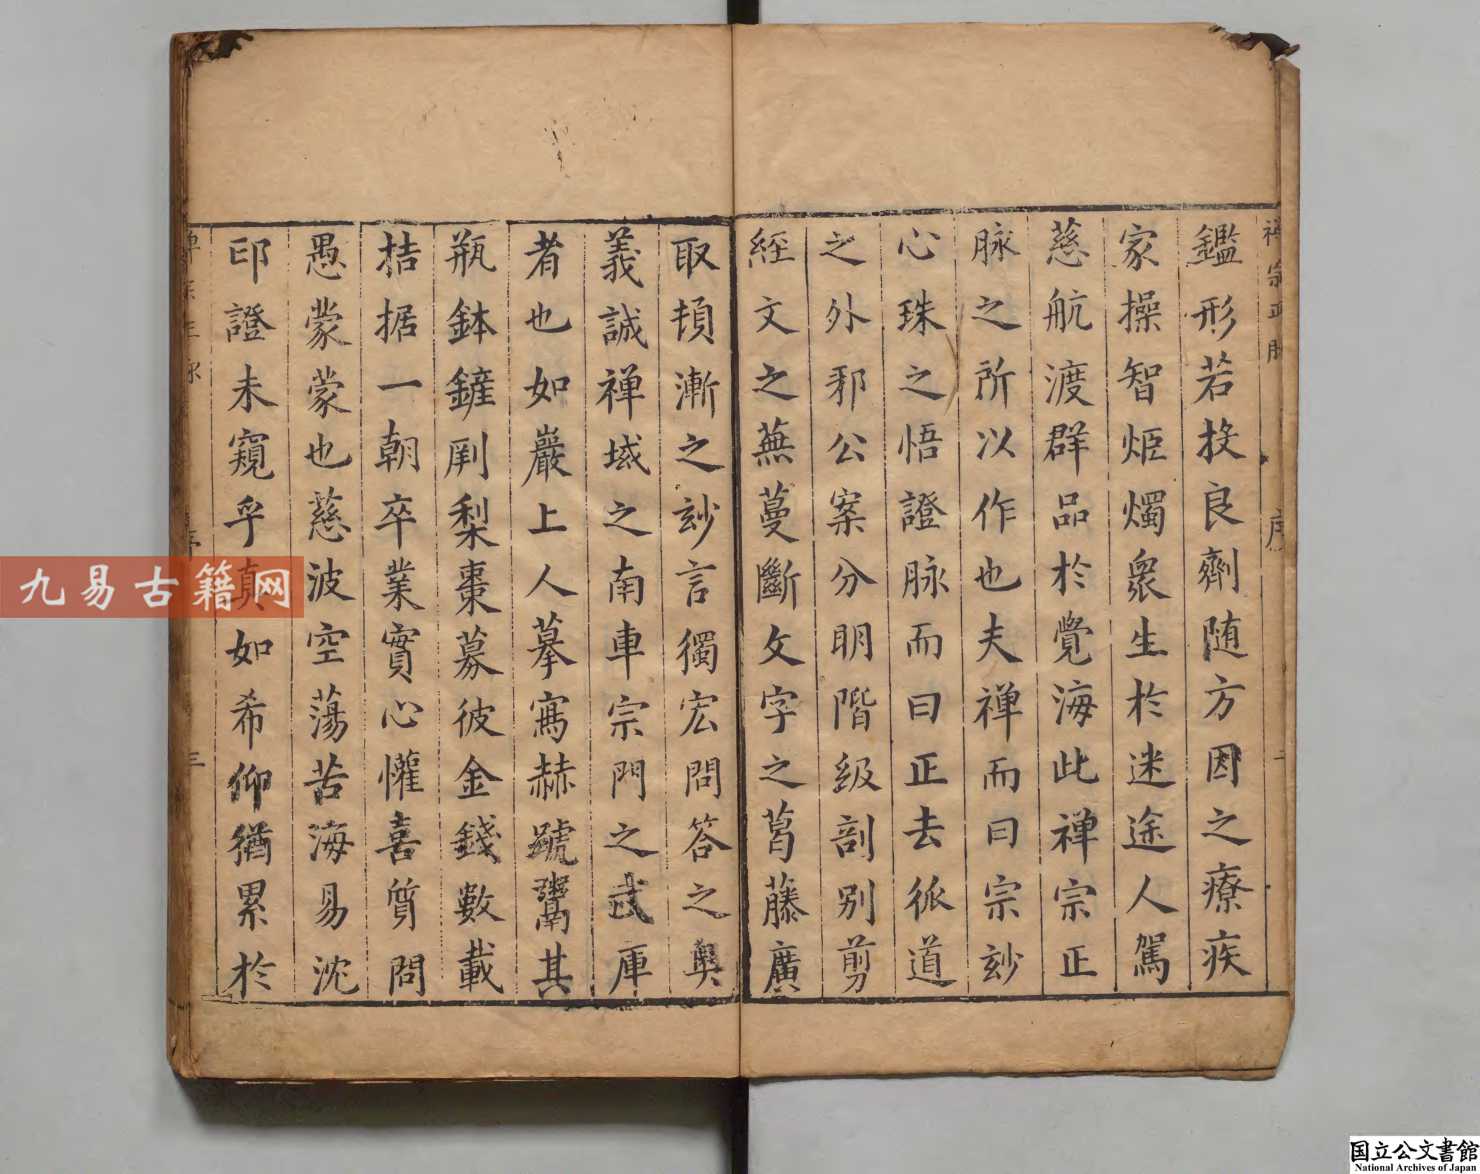 禅宗正脉 序 二
鑑形若投良劑随方因之療疾
家操智炬燭衆生於迷途人駕
慈航渡群品於覺海此禅宗正
脉之所以作也夫禅而曰宗玅
心珠之悟證脉而曰正去𣲖道
之外邪公案分明階級剖别剪
經文之蕪蔓斷文字之葛藤廣
取頓漸之玅言獨宏問答之奥
義誠禅域之南車宗門之武庫
者也如巖上人摹寫赫蹏鬻其
瓶鉢鏟刷梨棗募彼金錢數載
拮据一朝卒業實心懽喜質問
愚蒙蒙也慈波空蕩苦海易沈
印證未窺乎真如希仰猶累於
序 三
九易古籍网
国立公文書館
National Archives of Japan